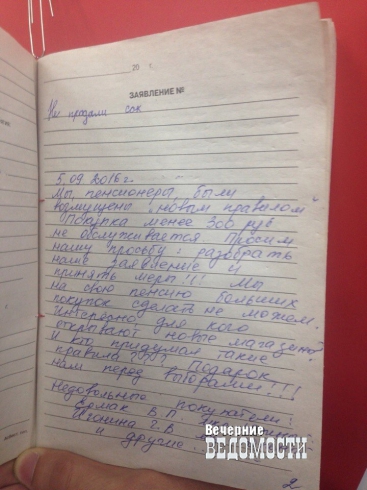 20 г.
ЗАЯВЛЕНИЕ №
Не продали сок
5.09 2016 г.
Мы пенсионеры были
возмущены "новым правилом"
Покупка менее 300 руб
не обслуживается. Просим
нашу просьбу: разобрать
наше заявление и
принять меры!!! Мы
на свою пенсию больших
покупок сделать не можем.
Интересно для кого
открывают новые магазины?
и кто придумал такие
правила??? Подарок
нам перед выборами!!!
Недовольные покупатели:
Ермак В.П.
Г.В.
и другие.
Вечерние
ВЕДОМОСТИ
2